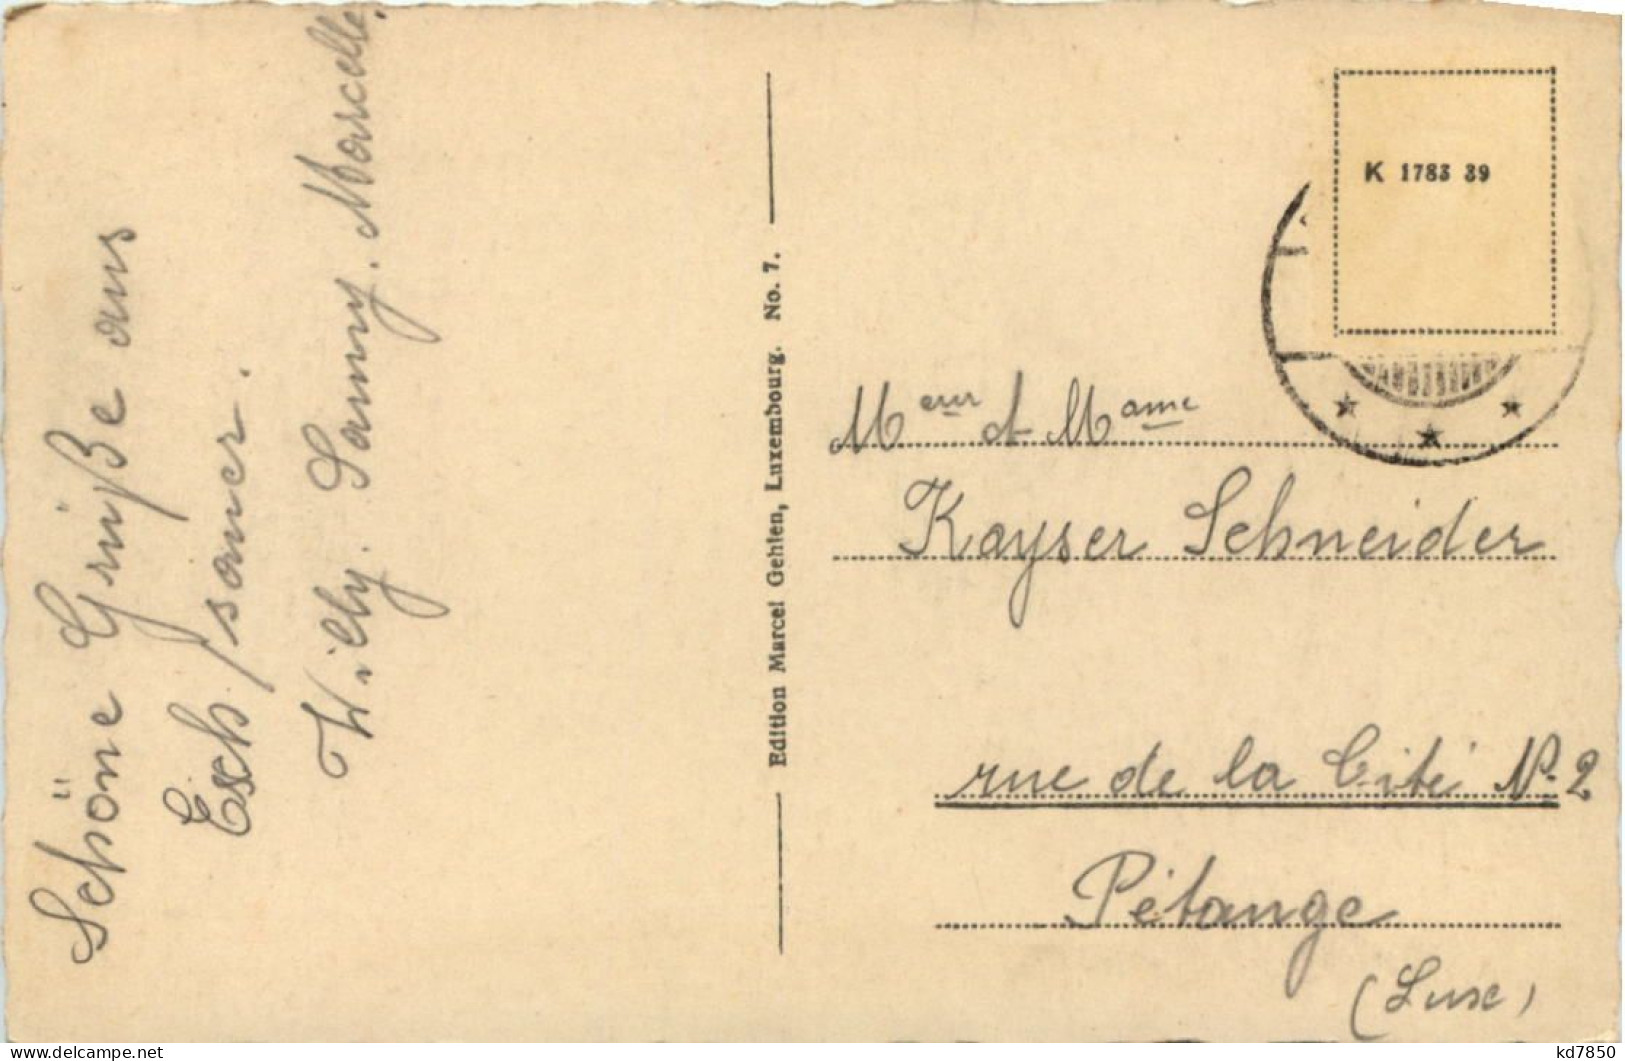 Schöne Grüße aus
Esch/sauer.
Willy. Sanny. Marcelle.
Edition Marcel Gehlen, Luxembourg. No. 7.
K 1783 39
Meur et Mame
Kayser Schneider
rue de la Cité No 2
Pétange
(Lux)
delcampe.net kd7850